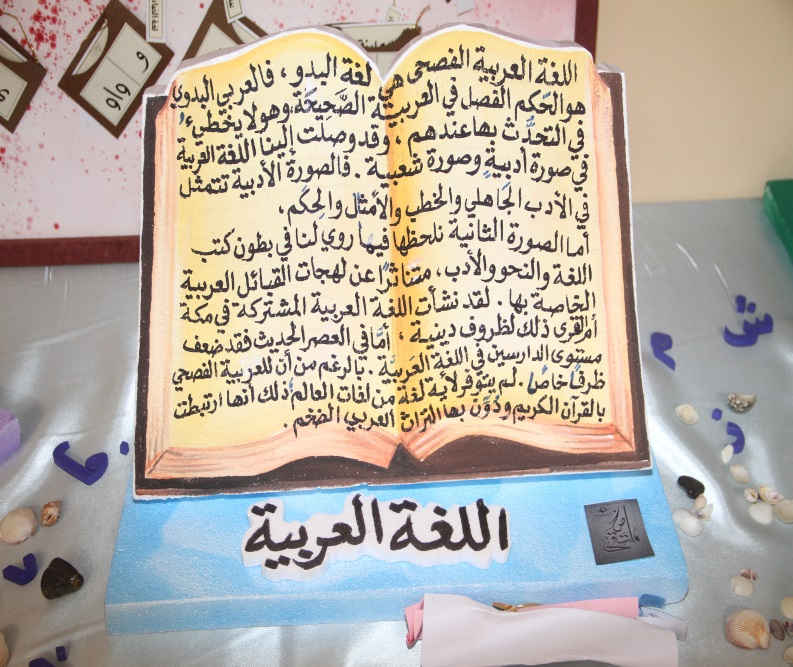 اللغة العربية الفصحى هي لغة البدو ، فالعربي البدوي
هو الحَكم الفصل في العربية الصَّحِيحَة، وهو لا يخطيء
في التحدُّث بها عندهم ، وقد وصلت إلينا اللغة العربية
في صورة أدبية وصورة شعبية . فالصورة الأدبية تتمثل
في الأدب الجَاهلي والخطب والأمثال والحِكَم،
أما الصورة الثانية نلحظها فيما روي لنا في بطون كتب
اللغة والنحو والأدب ، متناثرًا عن لهجات القبائل العربية
الخاصة بها . لقد نشأت اللغة العربية المشتركة في مكة
أم القرى ذلك لظروف دينية ، أمَّا في العصر الحديث فقد ضعف
مستوى الدارسين في اللغة العَربيَّة . بالرغم من أن للعربية الفصحى
ظرفًا خاصًا . لم يتوفر لأية لغة من لغات العالم ذلك أنها ارتبطت
بالقرآن الكريم ودُوِّن بها التراث العربي الضخم .
اللغة العربية
و
واو